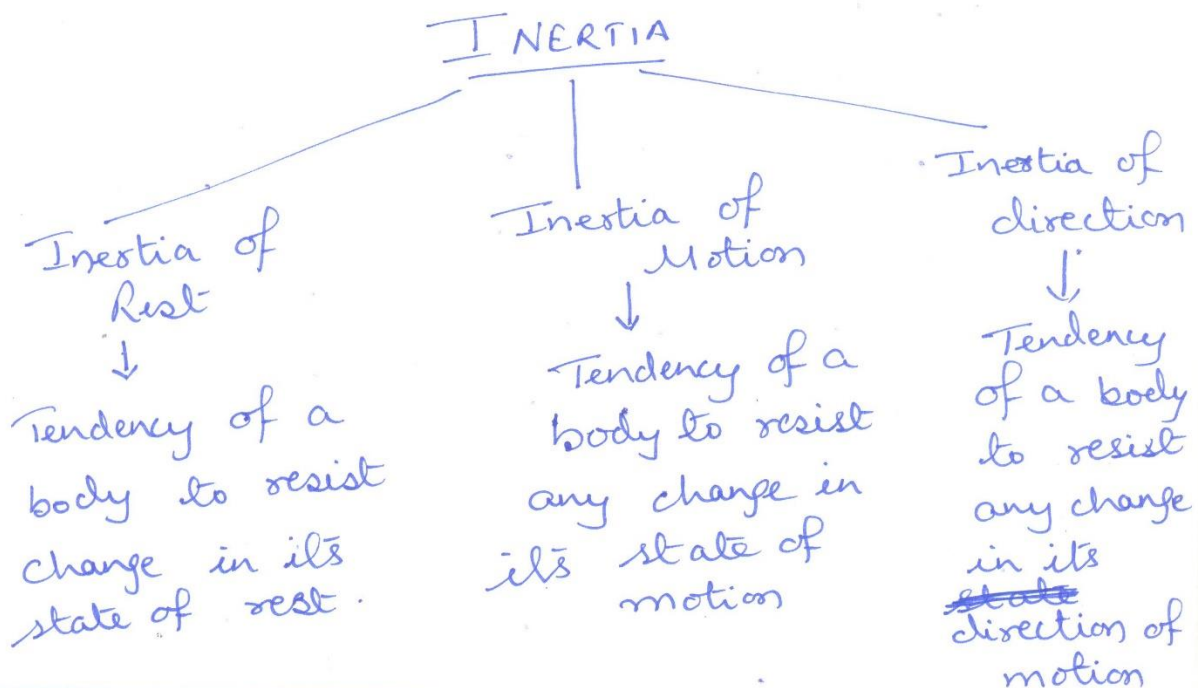 INERTIA
Inertia of
Rest
↓
Tendency of a
body to resist
change in it's
state of rest.
Inertia of
Motion
↓
Tendency of a
body to resist
any change in
it's state of
motion
Inertia of
direction
↓
Tendency
of a body
to resist
any change
in its
state
direction of
motion